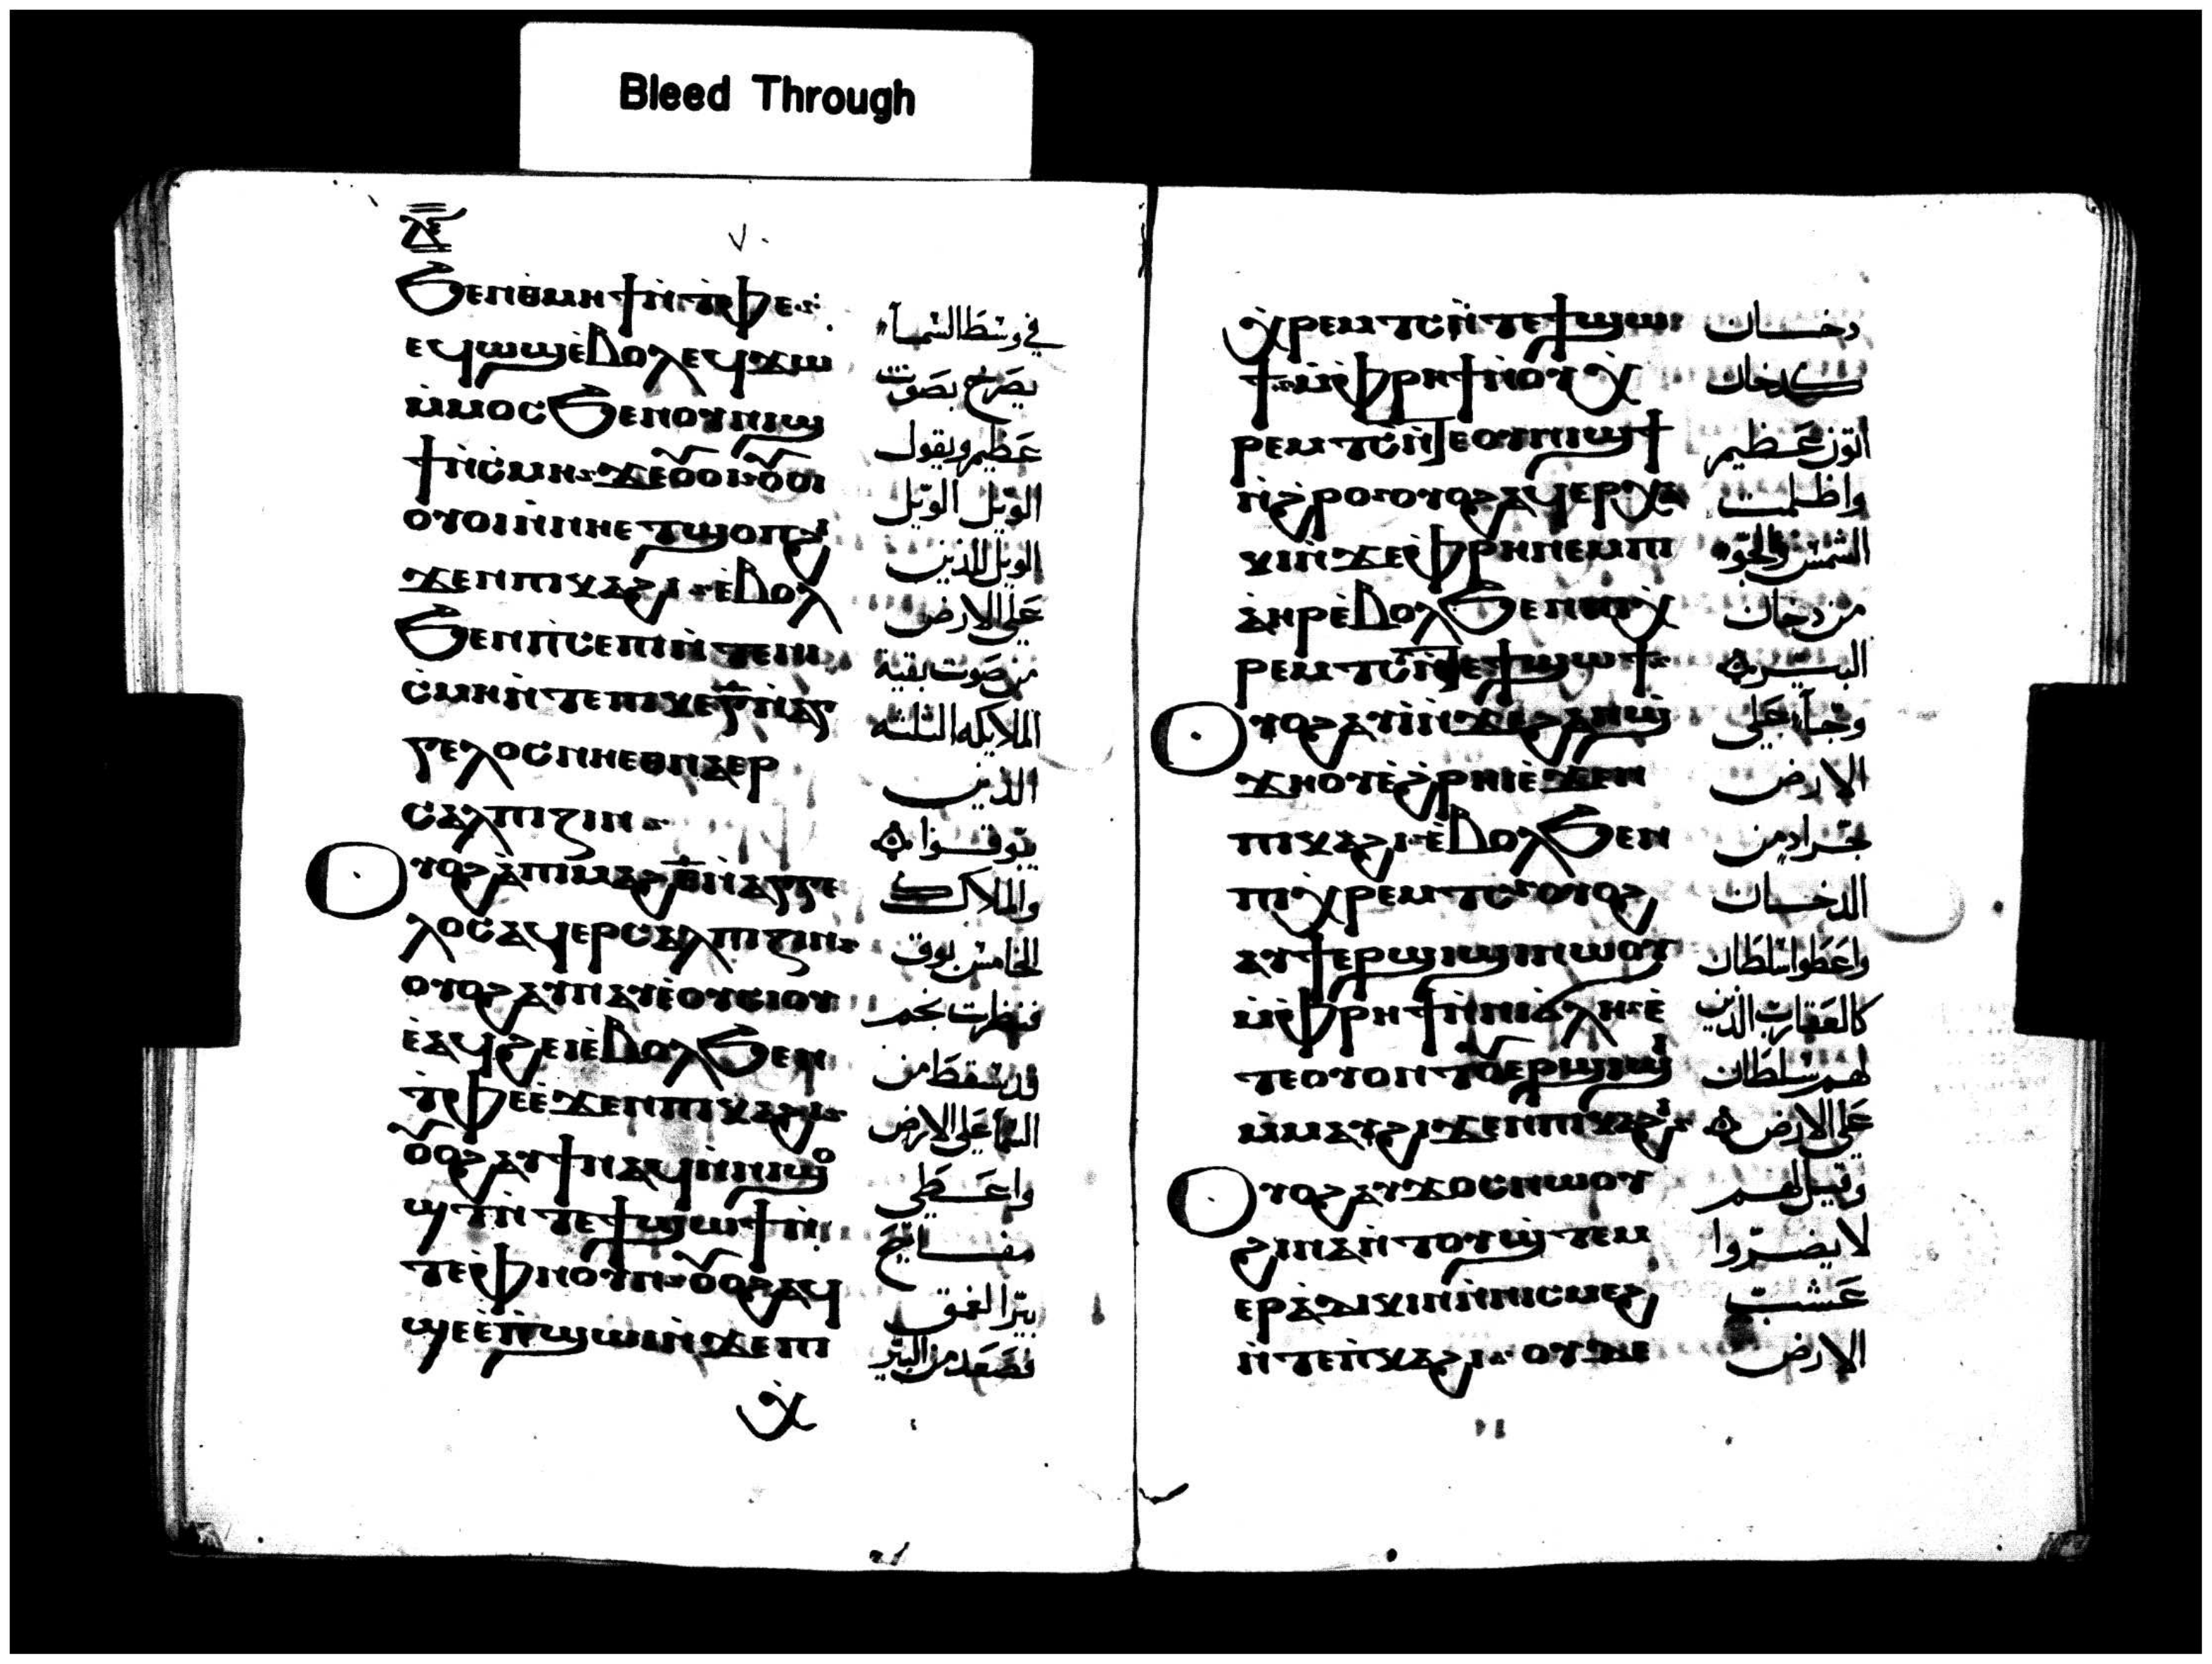 Bleed Through
ⲗ̅ⲉ̅
ϧⲉⲛⲑⲙⲏϯⲛ̀ⲧⲫⲉ
ⲉϥⲱϣⲉ̀ⲃⲟⲗⲉϥϫⲱ
ⲙ̀ⲙⲟⲥϧⲉⲛⲟⲩⲛⲓϣ
ϯⲛ̀ⲥⲙⲏ ϫⲉⲟⲩⲟⲓ ⲟⲩⲟⲓ
ⲟⲩⲟⲓⲛ̀ⲛⲏⲉⲧϣⲟⲡϩⲓ
ϫⲉⲛⲡⲓⲕⲁϩⲓ ⲉ̀ⲃⲟⲗ
ϧⲉⲛⲡ̀ⲥⲉⲡⲓⲛ̀ⲧⲉⲛⲓ
ⲥ̀ⲙⲏⲛ̀ⲧⲉⲡⲓⲕⲉⲅ̅ⲛ̀ⲁⲅ
ⲅⲉⲗⲟⲥⲛⲏⲉⲑⲛⲁⲉⲣ
ⲥⲁⲗⲡⲓⲍⲓⲛ
ⲟⲩⲟϩⲁ̀ⲡⲓⲙⲁϩⲉ̅ⲛ̀ⲁⲅⲅⲉ
ⲗⲟⲥⲁϥⲉⲣⲥⲁⲗⲡⲓⲍⲓⲛ
ⲟⲩⲟϩⲁⲩⲛⲁⲩⲉ̀ⲟⲩⲥⲓⲟⲩ
ⲉ̀ⲁϥϩⲉⲓⲉ̀ⲃⲟⲗϧⲉⲛ
ⲧ̀ⲫⲉⲉ̀ϫⲉⲛⲡⲓⲕⲁϩⲓ
ⲟⲩⲟϩⲁⲩϯⲛⲁϥⲛ̀ⲛⲓϣⲟ
ϣⲧⲛ̀ⲧⲉϯϣⲱϯⲛ̀
ⲧⲉⲫⲛⲟⲩⲛ ⲟⲩⲟϩⲁϥ
ϣⲉⲉ̀ⲡ̀ϣⲱⲓⲛ̀ϫⲉⲡⲓ
ⲭ̀
في وسط السماء
يصرخ بصوت
عظيم ويقول
الويل الويل
الويل للذين
على الارض
من صوت بقية
الملايكه الثلثه
الذين
يبوقوا
والملاك
الخامس بوق
فنظرت نجم
قد سقط من
السما على الارض
واعطي
مفاتيح
بير العمق
فصعد من البير
ⲭ̀ⲣⲉⲙⲧⲥⲛ̀ⲧⲉϯϣⲱ
ϯ ⲙ̀ⲫⲣⲏϯⲛ̀ⲟⲩⲭ̀
ⲣⲉⲙⲧⲥⲛ̀ⲧⲉⲟⲩⲛⲓϣϯ
ⲛ̀ϩⲣⲟ ⲟⲩⲟϩⲁϥⲉⲣⲭⲁ
ⲕⲓⲛ̀ϫⲉⲫ̀ⲣⲏⲛⲉⲙⲡⲓ
ⲁ̀ⲏⲣⲉ̀ⲃⲟⲗϧⲉⲛⲡⲓⲭ̀
ⲣⲉⲙⲧⲥⲛ̀ⲧⲉϯϣⲱϯ
ⲟⲩⲟϩⲁⲩⲓ̀ⲛ̀ϫⲉϩⲁⲛϣ
ϫⲏⲟⲩⲉ̀ϩ̀ⲣⲏⲓⲉ̀ϫⲉⲛ
ⲡⲓⲕⲁϩⲓ ⲉ̀ⲃⲟⲗϧⲉⲛ
ⲡⲓⲭ̀ⲣⲉⲙⲧⲥ ⲟⲩⲟϩ
ⲁⲩϯⲉⲣϣⲓϣⲓⲛⲱⲟⲩ
ⲙ̀ⲫⲣⲏϯⲛ̀ⲛⲓϭⲗⲏ ⲉ̀
ⲧⲉⲟⲩⲟⲛⲧⲟⲩⲉⲣϣⲓϣⲓ
ⲙ̀ⲙⲁⲩϩⲓϫⲉⲛⲡⲓⲕⲁϩⲓ
ⲟⲩⲟϩⲁⲩϫⲟⲥⲛⲱⲟⲩ
ϩⲓⲛⲁⲛ̀ⲧⲟⲩϣ̀ⲧⲉⲙ
ⲉⲣⲁⲇⲓⲕⲓⲛⲛ̀ⲛⲓⲥⲙⲉϩ
ⲛ̀ⲧⲉⲡ̀ⲕⲁϩⲓ ⲟⲩⲇⲉ
دخان
كدخان
اتون عظيم
واظلمت
الشمس والجو
من دخان
البير
وجاء على
الارض
جراد من
الدخان
واعطوا سلطان
كالعقارب الذين
لهم سلطان
على الارض
وقيل لهم
لا يضروا
عشب
الارض